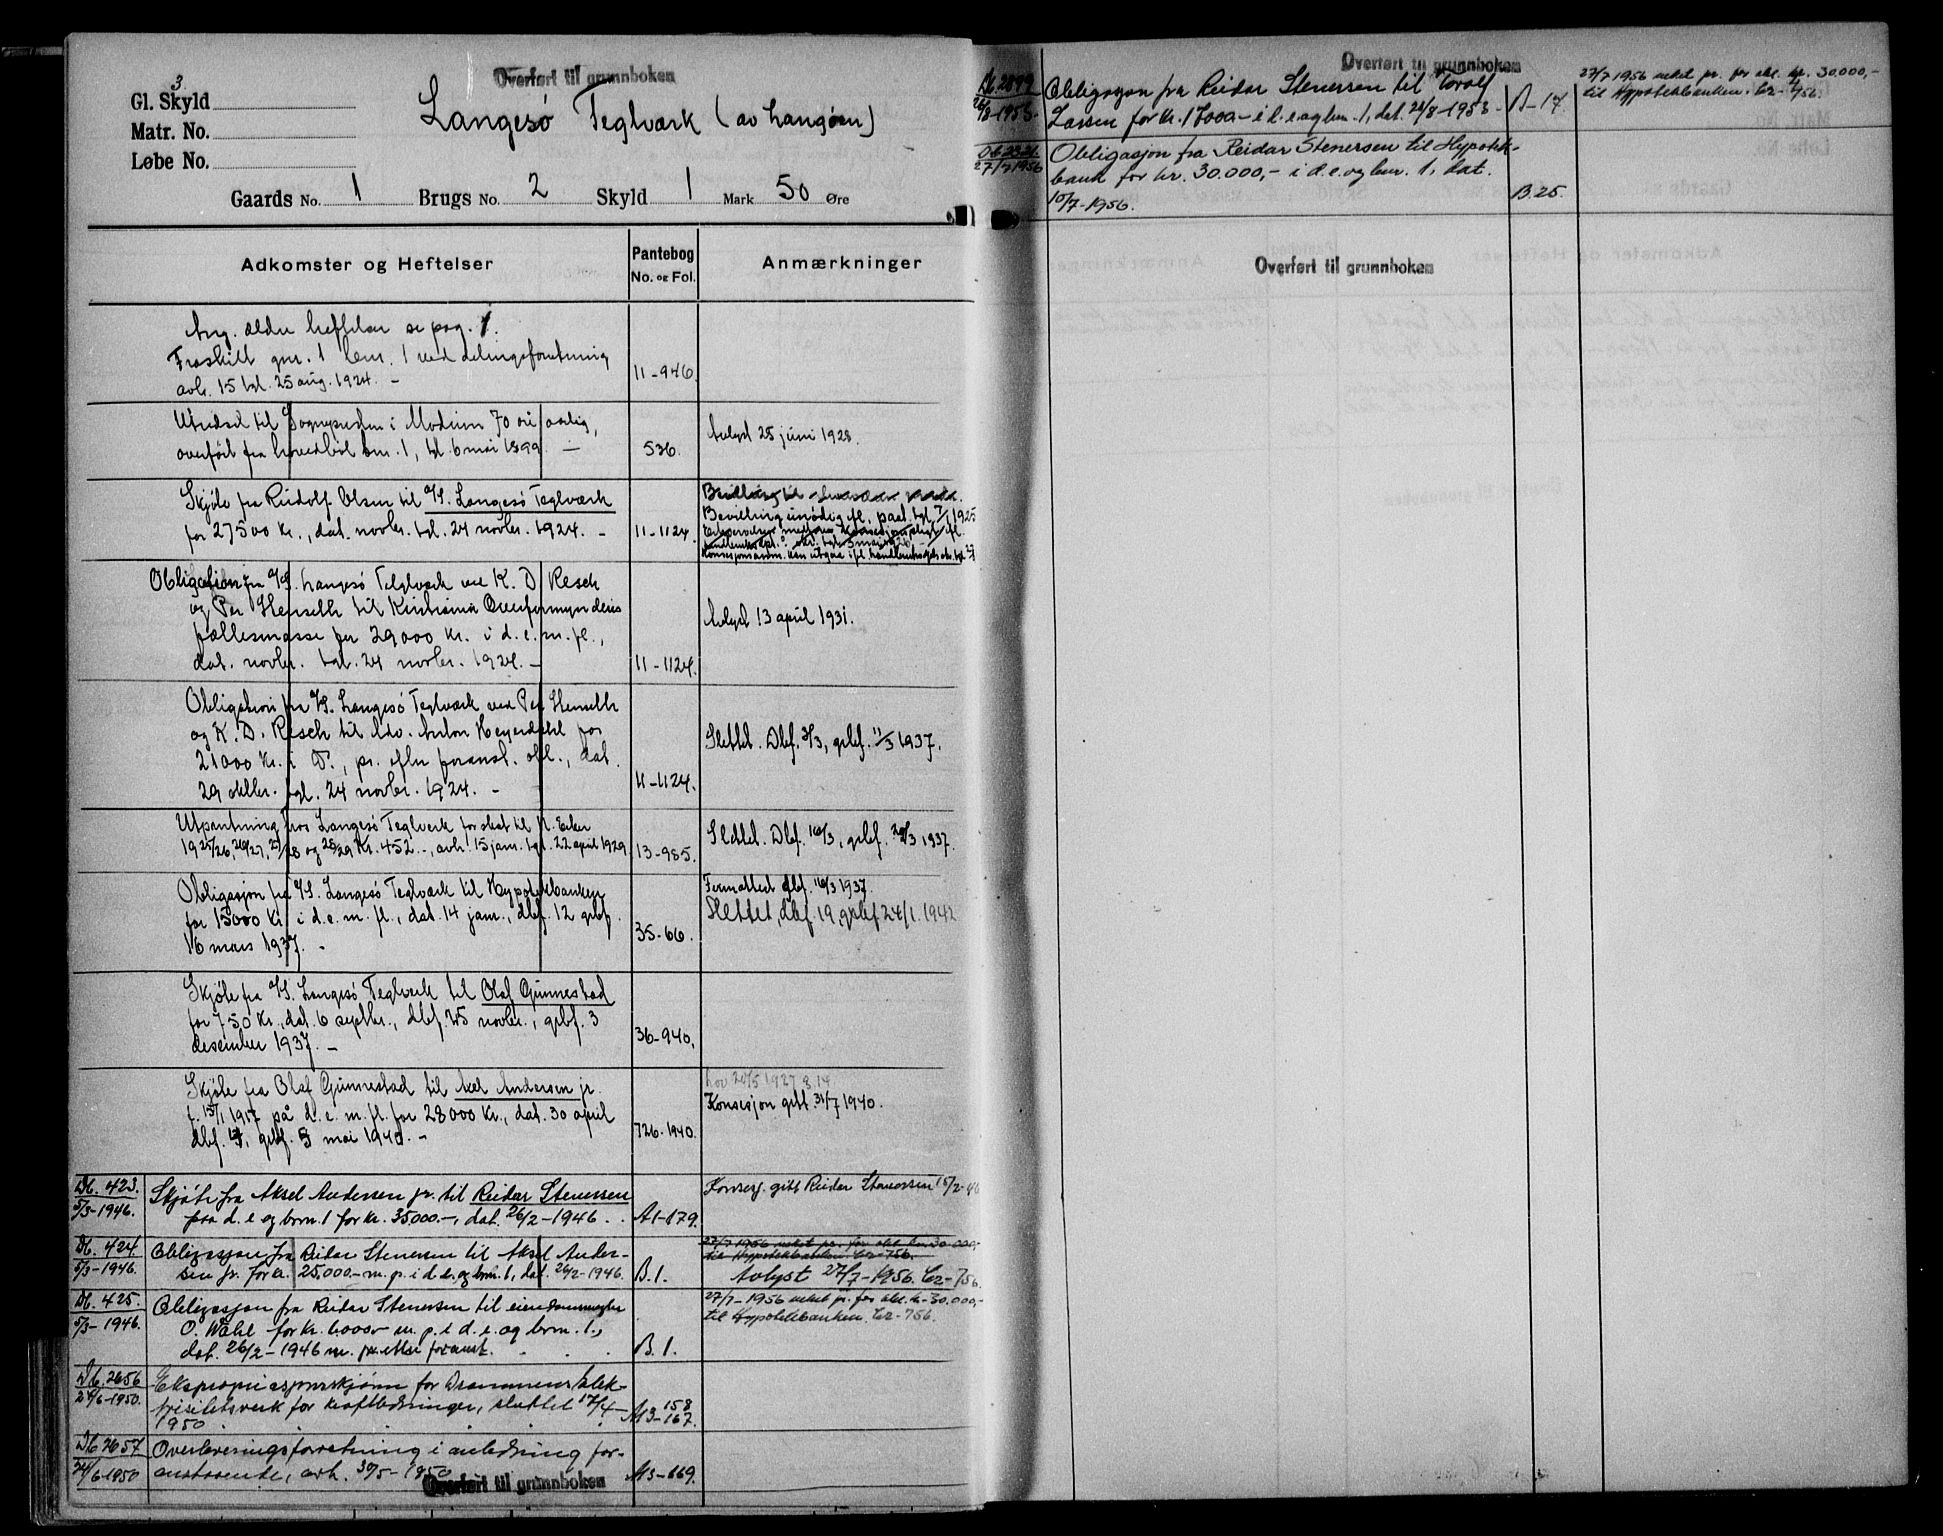 3
Overført til grunnboken
Gl. Skyld
Matr. No.
Løbe No.
Langesø Teglværk (av Langøen)
Gaards No. 1 Brugs No. 2 Skyld 1 Mark 50 Øre
Adkomster og Heftelser
Pantebog
No. og Fol.
Anmærkninger
Ang. ældre heftelser se pag. 1.
Fraskilt gnr. 1 brnr. 1 ved delingsforretning
avh. 15 tgl. 25 aug. 1924. –
11–946.
Utredsel til Sognepresten i Modum 70 øre aarlig,
overført fra hovedbøl bnr. 1, tgl. 6 mai 1899. –
536.
Avlyst 25 juni 1928.
Skjøte fra Reidolf Olsen til A/S. Langesø Teglværk
for 27500 Kr., dat. novbr. tgl. 24 novbr. 1924. –
11–1124.
Bevilling unødig ifl. paat. tgl. 7/1 1925
Obligation fra A/S. Langesø Teglværk ved K. D. Resch
og Per Henseth til Kristiania Overformynderis
fællesmasse for 29000 Kr. i d. e. m. fl.,
dat. novbr. tgl. 24 novbr. 1924. –
11–1124.
Avlyst 13 april 1931.
Obligation fra A/S. Langesø Teglværk ved Per Henseth
og K. D. Resch til Adv. Anton Heyerdahl for
21000 Kr. i D., pr. efter foranst. obl., dat.
29 oktbr. tgl. 24 novbr. 1924. –
11–1124.
Slettet. Dbf. 3/3, grbf. 11/3 1937.
Utpantning hos Langesø Teglverk for skat til N. Eiker
1925/26, 26/27, 27/28 og 28/29 Kr. 452.–, avh. 15 jan. tgl. 22 april 1929
13–985.
Slettet. Dbf. 16/3, grbf. 20/3 1937.
Obligasjon fra A/S. Langesø Teglværk til Hypotekbanken
for 15000 Kr. i d. e. m. fl., dat. 14 jan., dbf. 12 grbf.
16 mars 1937. –
35–66.
dbf. 16/3 1937.
Slettet, dbf. 19, grbf 24/1. 1942
Skjøte fra A/S. Langesø Teglverk til Olaf Gunnestad
for 750 Kr., dat. 6 septbr., dbf. 25 novbr., grbf. 3
desember 1937. –
36–940.
Skjøte fra Olaf Gunnestad til Axel Andersen jr.
f. 15/1 1917 på d. e. m. fl. for 28000 Kr., dat. 30 april
dbf. 4, grbf. 8 mai 1940. –
726.1940.
Lov 20/5 1927 § 14
Konsesjon gitt 31/7 1940.
Db. 423.
5/3–1946.
Skjøte fra Aksel Andersen jr. til Reidar Stenersen
paa d. e og brn. 1 for kr. 35000.–, dat. 26/2–1946.
A1–179.
Konsesj. gitt Reidar Stenersen 15/2–46
Db. 424.
5/3–1946.
Obligasjon fra Reidar Stenersen til Aksel Ander-
sen jr. for kr. 25,000.– m. p. i d. e. og brn. 1, dat. 26/2–1946.
B. 1.
27/7 1956 veket pr. for obl. kr. 30 000,-
til Hypotekbanken. C2–756.
Avlyst 27/7–1956. C2–756.
Db. 425.
5/3–1946.
Obligasjon fra Reidar Stenersen til eiendomsmegler
O. Wahl for kr. 6000.– m. p. i d. e. og brn. 1.,
dat. 26/2–1946 m. pr. etter foranst.
B. 1.
27/7–1956 veket pr. for obl. kr. 30.000,–
til Hypotekbanken. C2–756.
Db. 2656
24/6–1950.
Ekspropriasjonsskjønn for Drammens Elek-
trisitetsverk for kraftledninger, sluttet 17/4–
1950
A13–158
167.
Db 2657
24/6 1950
Overleveringsforretning i anledning for-
anstaaende, avh. 30/5–1950
A13–169.
Overført til grunnboken
Db. 2899
26/8–1953.
Obligasjon fra Reidar Stenersen til Torolf
Lassen for kr. 17000.– i d. e og bn. 1, dat. 21/8–1953 –
B–17.
Overført til grunnboken
27/7 1956 veket pr. for obl. kr. 30.000,–
til Hypotekbanken. C2–756.
Db 2321
27/7 1956
Obligasjon fra Reidar Stenersen til Hypotek-
bank for kr. 30.000,– i d. e. og bnr. 1, dat.
10/7–1956.
B. 25.
Overført til grunnboken